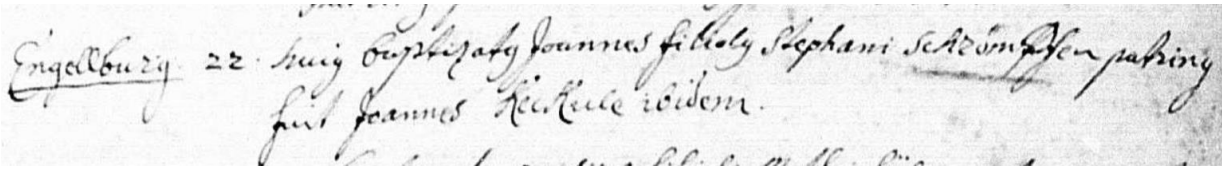 Engellburg. 22. huiq baptizatq Joannes filiolq Stephani Schrömpffen patrinq
fuit Joannes Keckule ibidem.